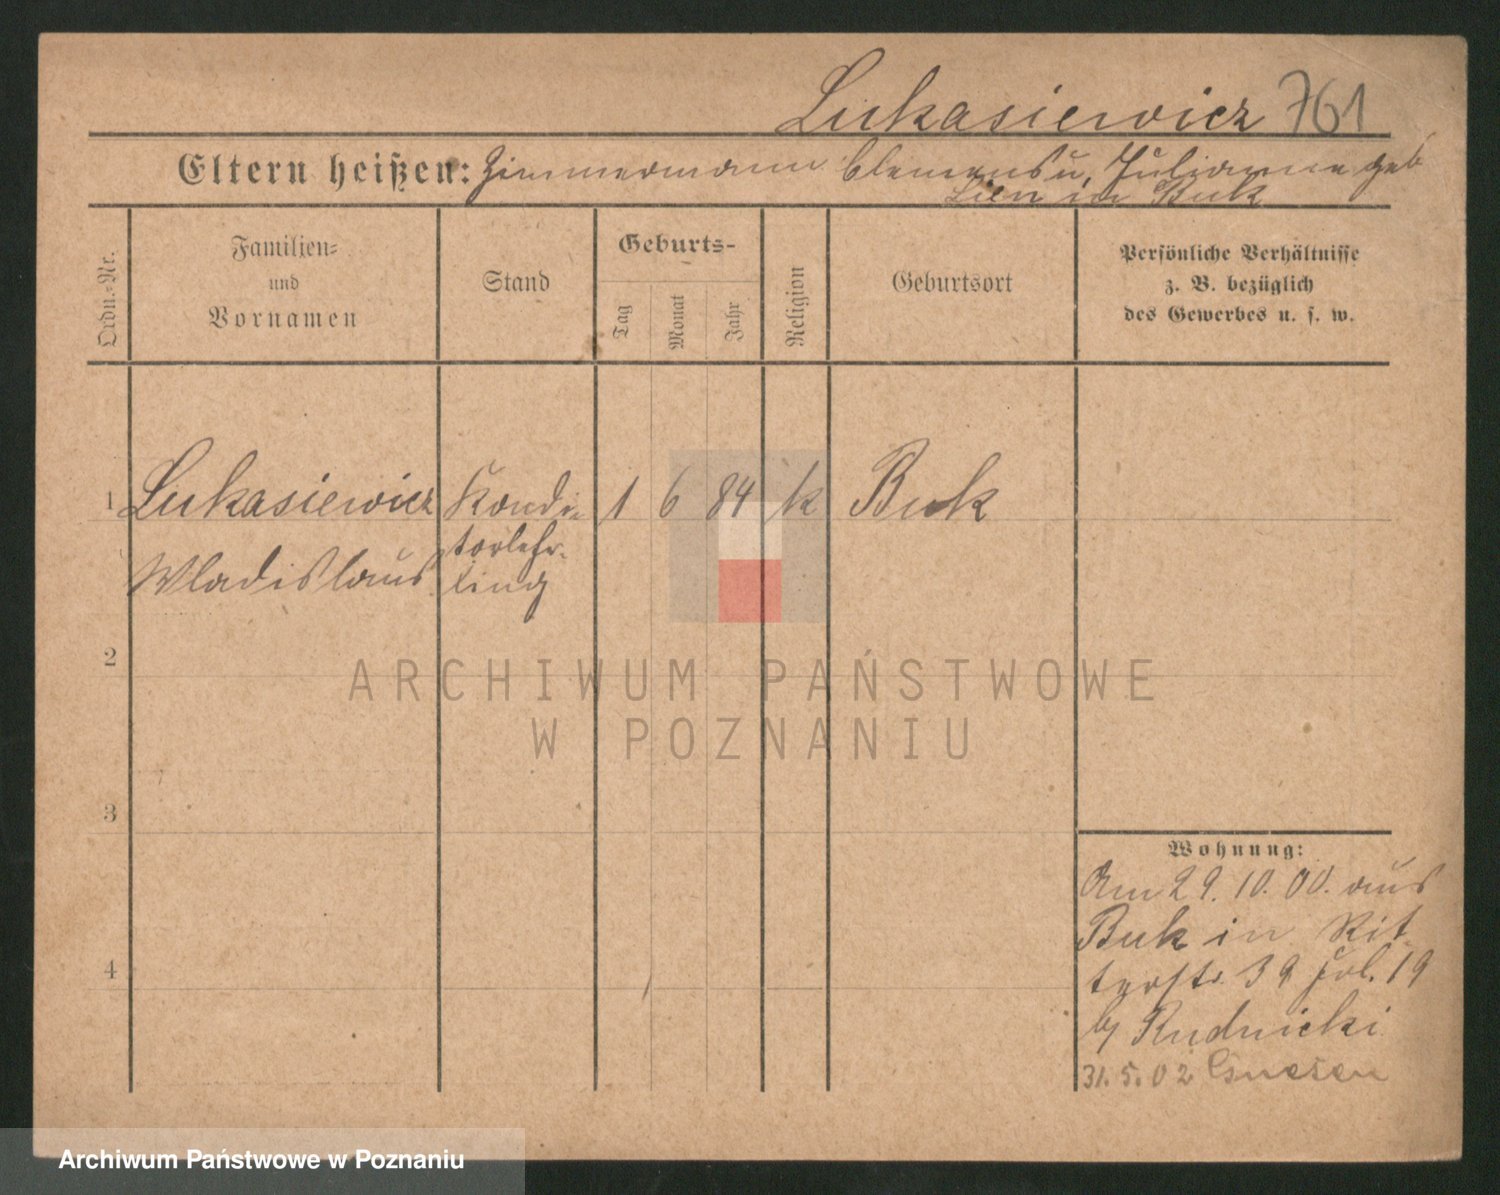 Lukasiewicz 761
Eltern heißen: Zimmermann Clemens u. Julianna geb
Lien in Buk
Ordn.-Nr.
Familien-
und
Vornamen
Stand
Geburts-
Tag
Monat
Jahr
Religion
Geburtsort
Persönliche Verhältnisse
z. B. bezüglich
des Gewerbes u. s. w.
1 Lukasiewicz Kondi- 1 6 84 k Buk
Wladislaus torlehr-
ling
2
ARCHIWUM PAŃSTWOWE
W POZNANIU
3
Wohnung:
Am 29. 10. 00. aus
Buk in Rit-
4
terstr. 39 19
b/ Rudnicki
31. 5. 02 Gnesen
Archiwum Państwowe w Poznaniu